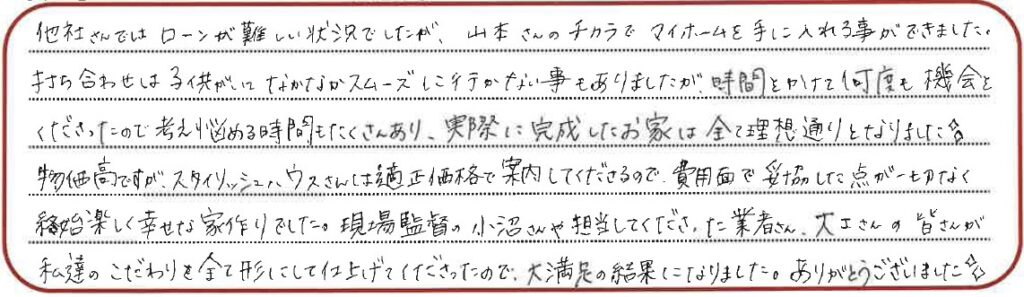 他社さんではローンが難しい状況でしたが、山本さんのチカラでマイホームを手に入れる事ができました。
打ち合わせは子供がいてなかなかスムーズに行かない事もありましたが、時間をかけて何度も機会を
くださったので考え悩める時間もたくさんあり、実際に完成したお家は全て理想通りとなりました☆
物価高ですが、スタイリッシュハウスさんは適正価格で案内してくださるので、費用面で妥協した点が一切なく
終始楽しく幸せな家作りでした。現場監督の小沼さんや担当してくださった業者さん、大工さんの皆さんが
私達のこだわりを全て形にして仕上げてくださったので、大満足の結果になりました。ありがとうございました☆